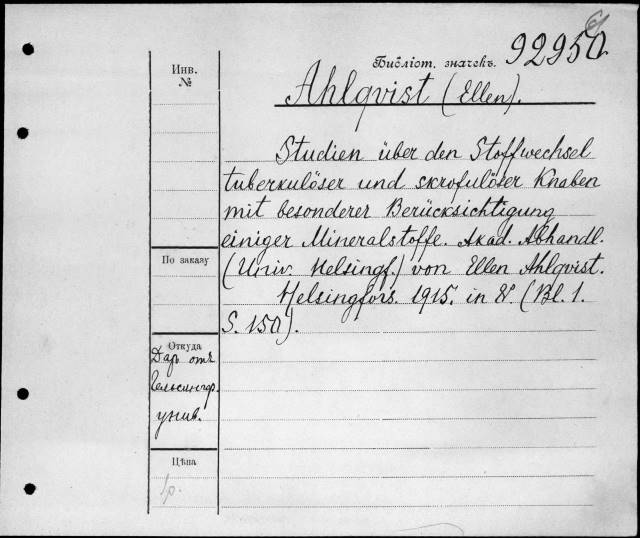 Библіот. значекъ. 92950
Инв.
№
Ahlqvist (Ellen).
Studien über den Stoffwechsel
tuberkulöser und skrofulöser Knaben
mit besonderer Berücksichtigung
einiger Mineralstoffe. Akad. Abhandl.
По заказу
(Univ. Helsingf.) von Ellen Ahlqvist.
Helsingfors. 1915. in 8°. (Bl. 1.
S. 150).
Откуда
Даръ отъ
Гельсингф.
унив.
Цѣна